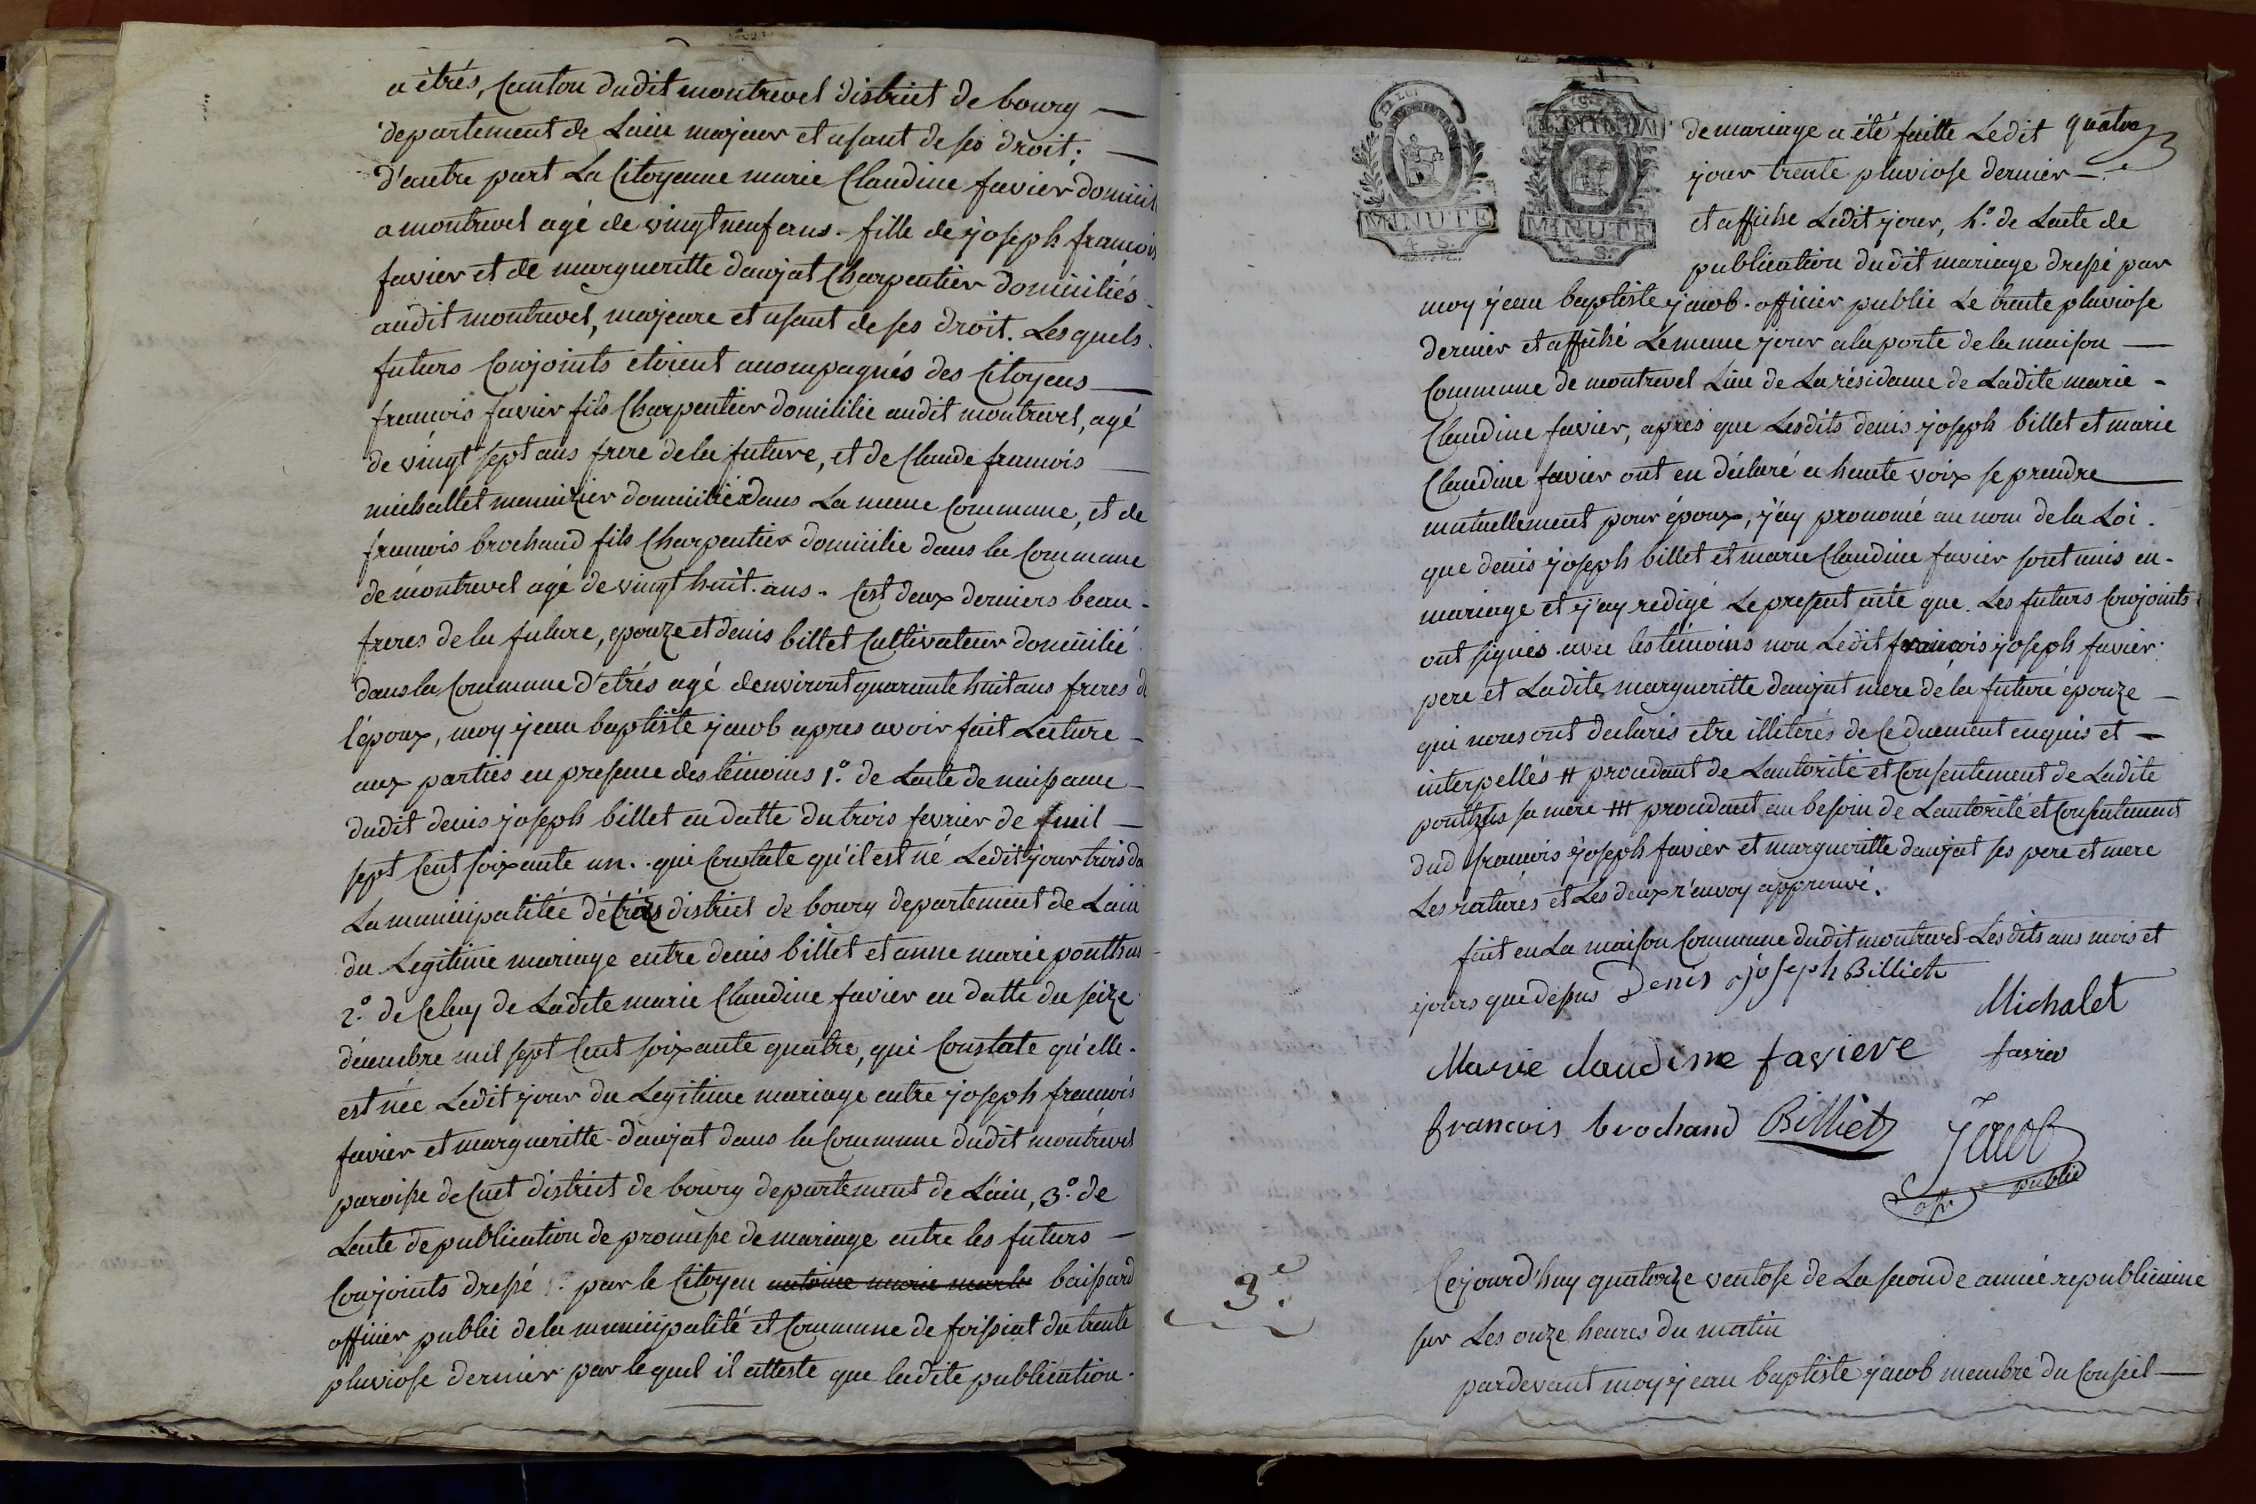 a ètrés, Canton dudit montrevel district de bourg —
departement de Lain majeur et usant de ses droit; —
d'autre part La Citoyenne marie Claudine favier domicili
a montrevel agé de vingt neuf ans. fille de joseph francois
favier et de margueritte daujat Charpentier domiciliés
audit montrevel, majeure et usant de ses droit. Lesquels
futurs Conjoints etoient acompagnés des Citoyens —
francois favier fils Charpentier domicilie audit montrevel, agé
de vingt sept ans frere dela future, et de Claude francois —
michallet menuizier domicilié dans La meme Commune, et de
francois brochand fils Charpentier domicilie dans la Commune
de montrevel agé de vingt huit. ans. Cest deux derniers beau-
freres dela future, epouze et denis billet Cultivateur domicilié
dans la Commune d'etrés agé denviront quarante huit ans freres de
l'époux, moy jean baptiste jacob apres avoir fait Lecture
aux parties en presence des témoins 1.º de Lacte de naissance
dudit denis joseph billet en datte du trois fevrier de mil —
sept Cent soixante un.. qui Constate qu'il est né Ledit jour trois da
La municipalitée détrés district de bourg departement de Lain
du Legitime mariage entre denis billet et anne marie ponthus
2.º de Celuy de Ladite marie Claudine favier en datte du seize
décembre mil sept Cent soixante quatre, qui Constate qu'elle
est née Ledit jour du Legitime mariage entre joseph francois
favier et margueritte daujat dans la Commune dudit montrevel
paroisse de Cuet district de bourg departement de Lain, 3.º de
Lacte de publication de promesse de mariage entre les futurs —
Conjoints dressé par le Citoyen antoine marie baissard
officier public dela municipalité et Commune de foissiat du trente
pluviose dernier par lequel il atteste que ladite publication.
MINUTE
4. S.
MINUTE
S.
de mariage a été faitte Ledit quatre
jour trente pluviose dernier —
et affiche Ledit jour, 4.º de Lacte de
publication dudit mariage dressé par
moy jean baptiste jacob. officier public Le trente pluviose
dernier et affiché Lemême jour a la porte de la maison —
Commune de montrevel Lieu de La résidance de Ladite marie -
Claudine favier, après que Lesdits denis joseph billet et marie
Claudine favier ont eu déclaré a haute voix se prendre —
mutuellement pour époux, j'ay prononcé au nom de la Loi.
que denis joseph billet et marie Claudine favier sont unis en -
mariage et j'ay redigé Le present acte que Les futurs Conjoints
ont signés avec les témoins non Ledit françois joseph favier
pere et Ladite margueritte daujat mere de la future épouze —
qui nous ont declarés etre illiterés de Ce duement enquis et —
interpellés # procedant de Lautorité et Consentement de Ladite
ponthus sa mere ## procedant au besoin de Lautorité et Consentement
dud francois joseph favier et margueritte daujat ses pere et mere
Les ratures et Les deux r'envoy approuvé.
fait en La maison Commune dudit montrevel Les dits ans mois et
jours que dessus Denis joseph Billiet
Michalet
Marie claudine faviere favier
francois brochand Billiet Jacob
offi. public
3.e
Cejourd'huy quatorze ventose de La seconde année republicaine
sur Les onze heures du matin
pardevant moy jean baptiste jacob membre du Conseil —